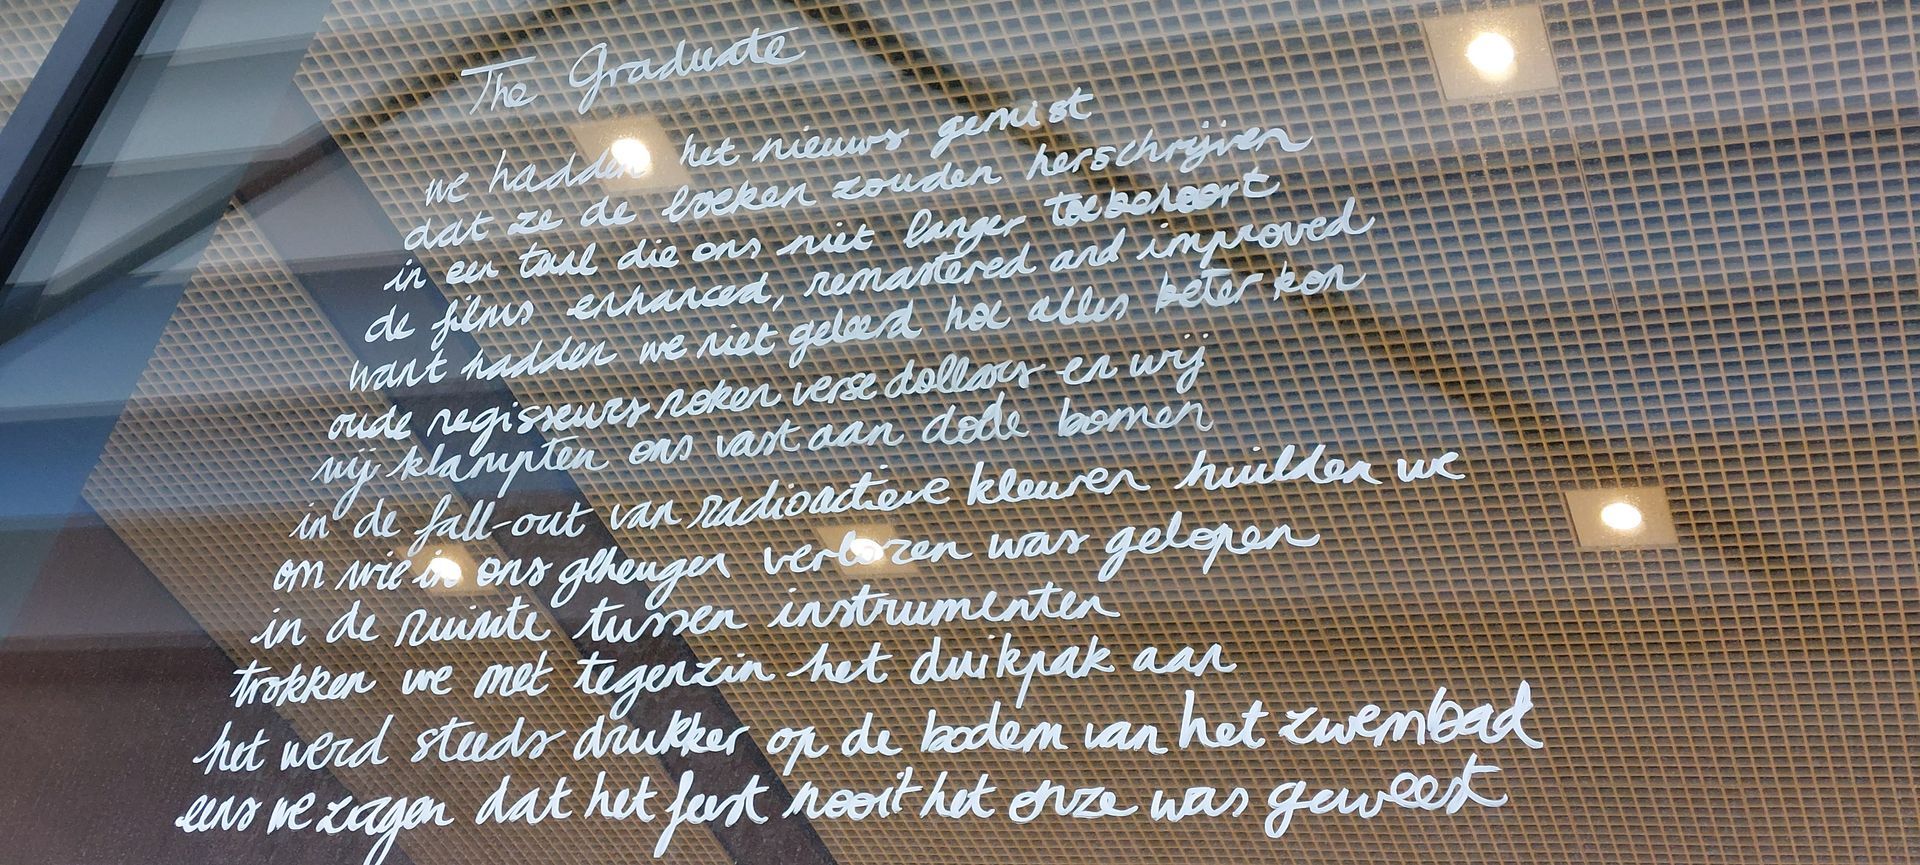 The Graduate
we hadden het nieuws gemist
dat ze de boeken zouden herschrijven
in een taal die ons niet langer toebehoort
de films enhanced, remastered and improved
want hadden we niet geleerd hoe alles beter kon
oude regisseurs roken verse dollars en wij
wij klampten ons vast aan dode bomen
in de fall-out van radioactieve kleuren huilden we
om wie in ons geheugen verloren was gelopen
in de ruimte tussen instrumenten
trokken we met tegenzin het duikpak aan
het werd steeds drukker op de bodem van het zwembad
eens we zagen dat het feest nooit het onze was geweest